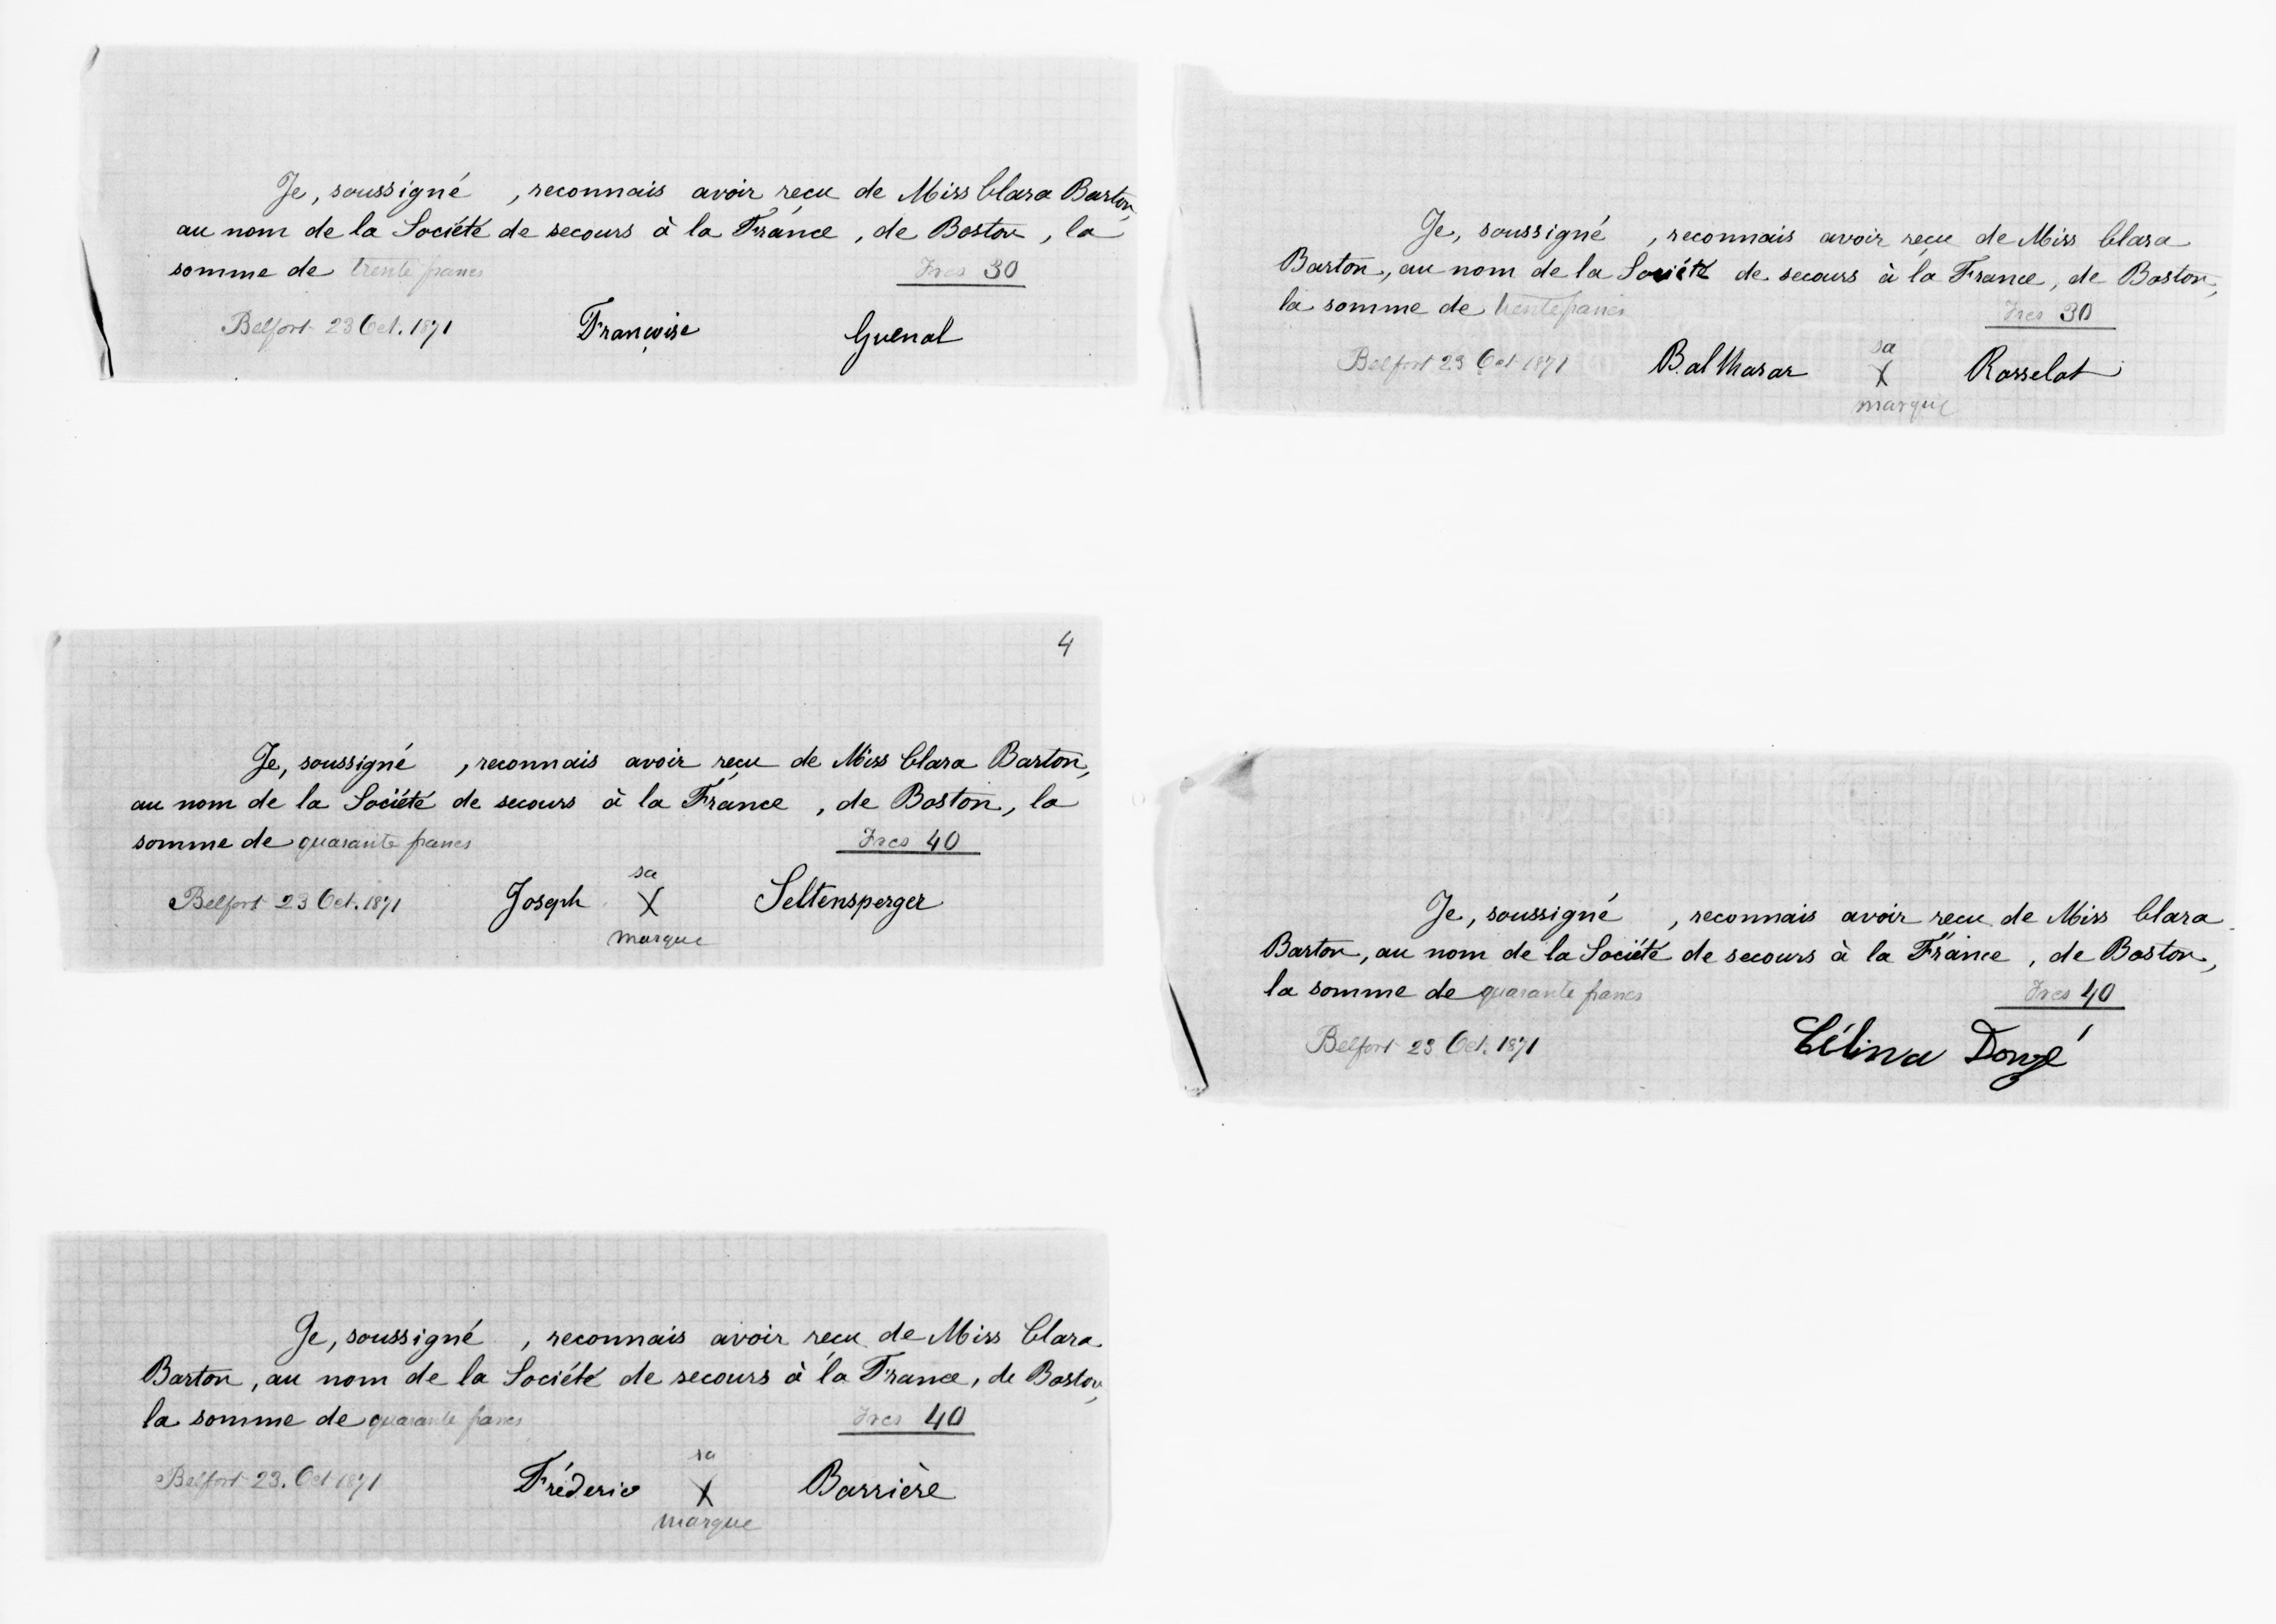 Je, soussigné , reconnais avoir reçu de Miss Clara Barton,
au nom de la Société de secours à la France, de Boston, la
somme de trente francs Frcs 30
Belfort 23 Oct. 1871 Françoise Guenal
Je, soussigné , reconnais avoir reçu de Miss Clara
Barton, au nom de la Société de secours à la France, de Boston,
la somme de trente francs Frcs 30
Belfort 23 Oct 1871 Balthasar sa X marque Rosselot
4
Je, soussigné , reconnais avoir reçu de Miss Clara Barton,
au nom de la Société de secours à la France, de Boston, la
somme de quarante francs Frcs 40
Belfort 23 Oct. 1871 Joseph sa X marque Seltensperger
Je, soussigné , reconnais avoir reçu de Miss Clara
Barton, au nom de la Société de secours à la France, de Boston,
la somme de quarante francs Frcs 40
Belfort 23 Oct. 1871 Célina Donzé
Je, soussigné , reconnais avoir reçu de Miss Clara
Barton, au nom de la Société de secours à la France, de Boston,
la somme de quarante francs Frcs 40
Belfort 23. Oct 1871 Fréderic sa X marque Barrière